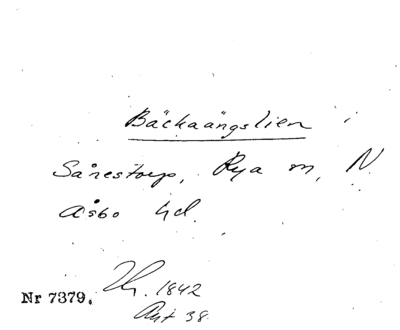 Bäckaängslien
Sånestorp, Rya sn, N.
Åsbo hd.
Nr 7379.
1842
Akt 38.